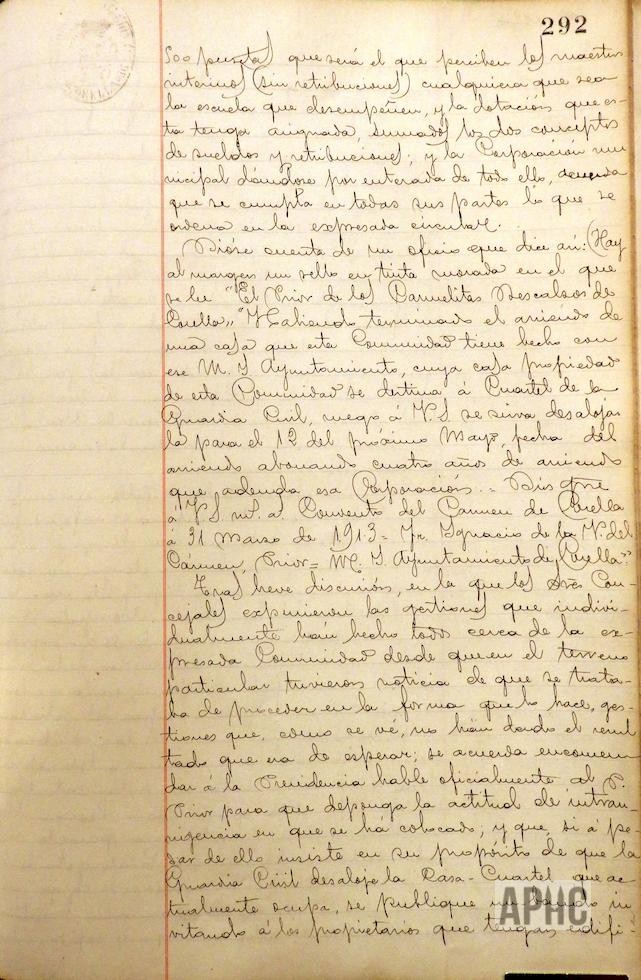 292
500 pesetas que será el que perciben los maestros
interinos (sin retribuciones) cualquiera que sea
la escuela que desempeñen, y la dotación que es-
ta tenga asignada, sumados los dos conceptos
de sueldos y retribuciones; y la Corporación mu-
nicipal dándose por enterada de todo ello, acuerda
que se cumpla en todas sus partes lo que se
ordena en la expresada circular.
Dióse cuenta de un oficio que dice así: (Hay
al margen un sello en tinta morada en el que
se lee "El Prior de los Carmelitas Descalzos de
Corella" "Habiendo terminado el arriendo de
una casa que esta Comunidad tiene hecho con
ese M. I. Ayuntamiento, cuya casa propiedad
de esta Comunidad se destina á Cuartel de la
Guardia Civil, ruego á V.S. se sirva desalojar
la para el 12 del próximo Mayo, fecha del
arriendo abonando cuatro años de arriendo
que adeuda esa Corporación.= Dios gue
á V.S. m.s a.s Convento del Carmen de Corella
á 31 Marzo de 1913= Fr. Ignacio de la V. del
Cármen, Prior= M. I. Ayuntamiento de Corella."
Tras breve discusión, en la que los Sres Con-
cejales expusieron las gestiones que indivi-
dualmente han hecho todos cerca de la ex-
presada Comunidad desde que en el terreno
particular tuvieron noticia de que se trata-
ba de proceder en la forma que lo hace, ges-
tiones que, cómo se vé, no han dado el resul
tado que era de esperar; se acuerda encomen
dar á la Presidencia hable oficialmente al P.
Prior para que deponga la actitud de intran-
sigencia en que se há colocado; y que, si á pe
sar de ello insiste en su propósito de que la
Guardia Civil desaloje la Casa-Cuartel que ac-
tualmente ocupa, se publique un bando in
vitando á los propietarios que tengan edifi-
APHC